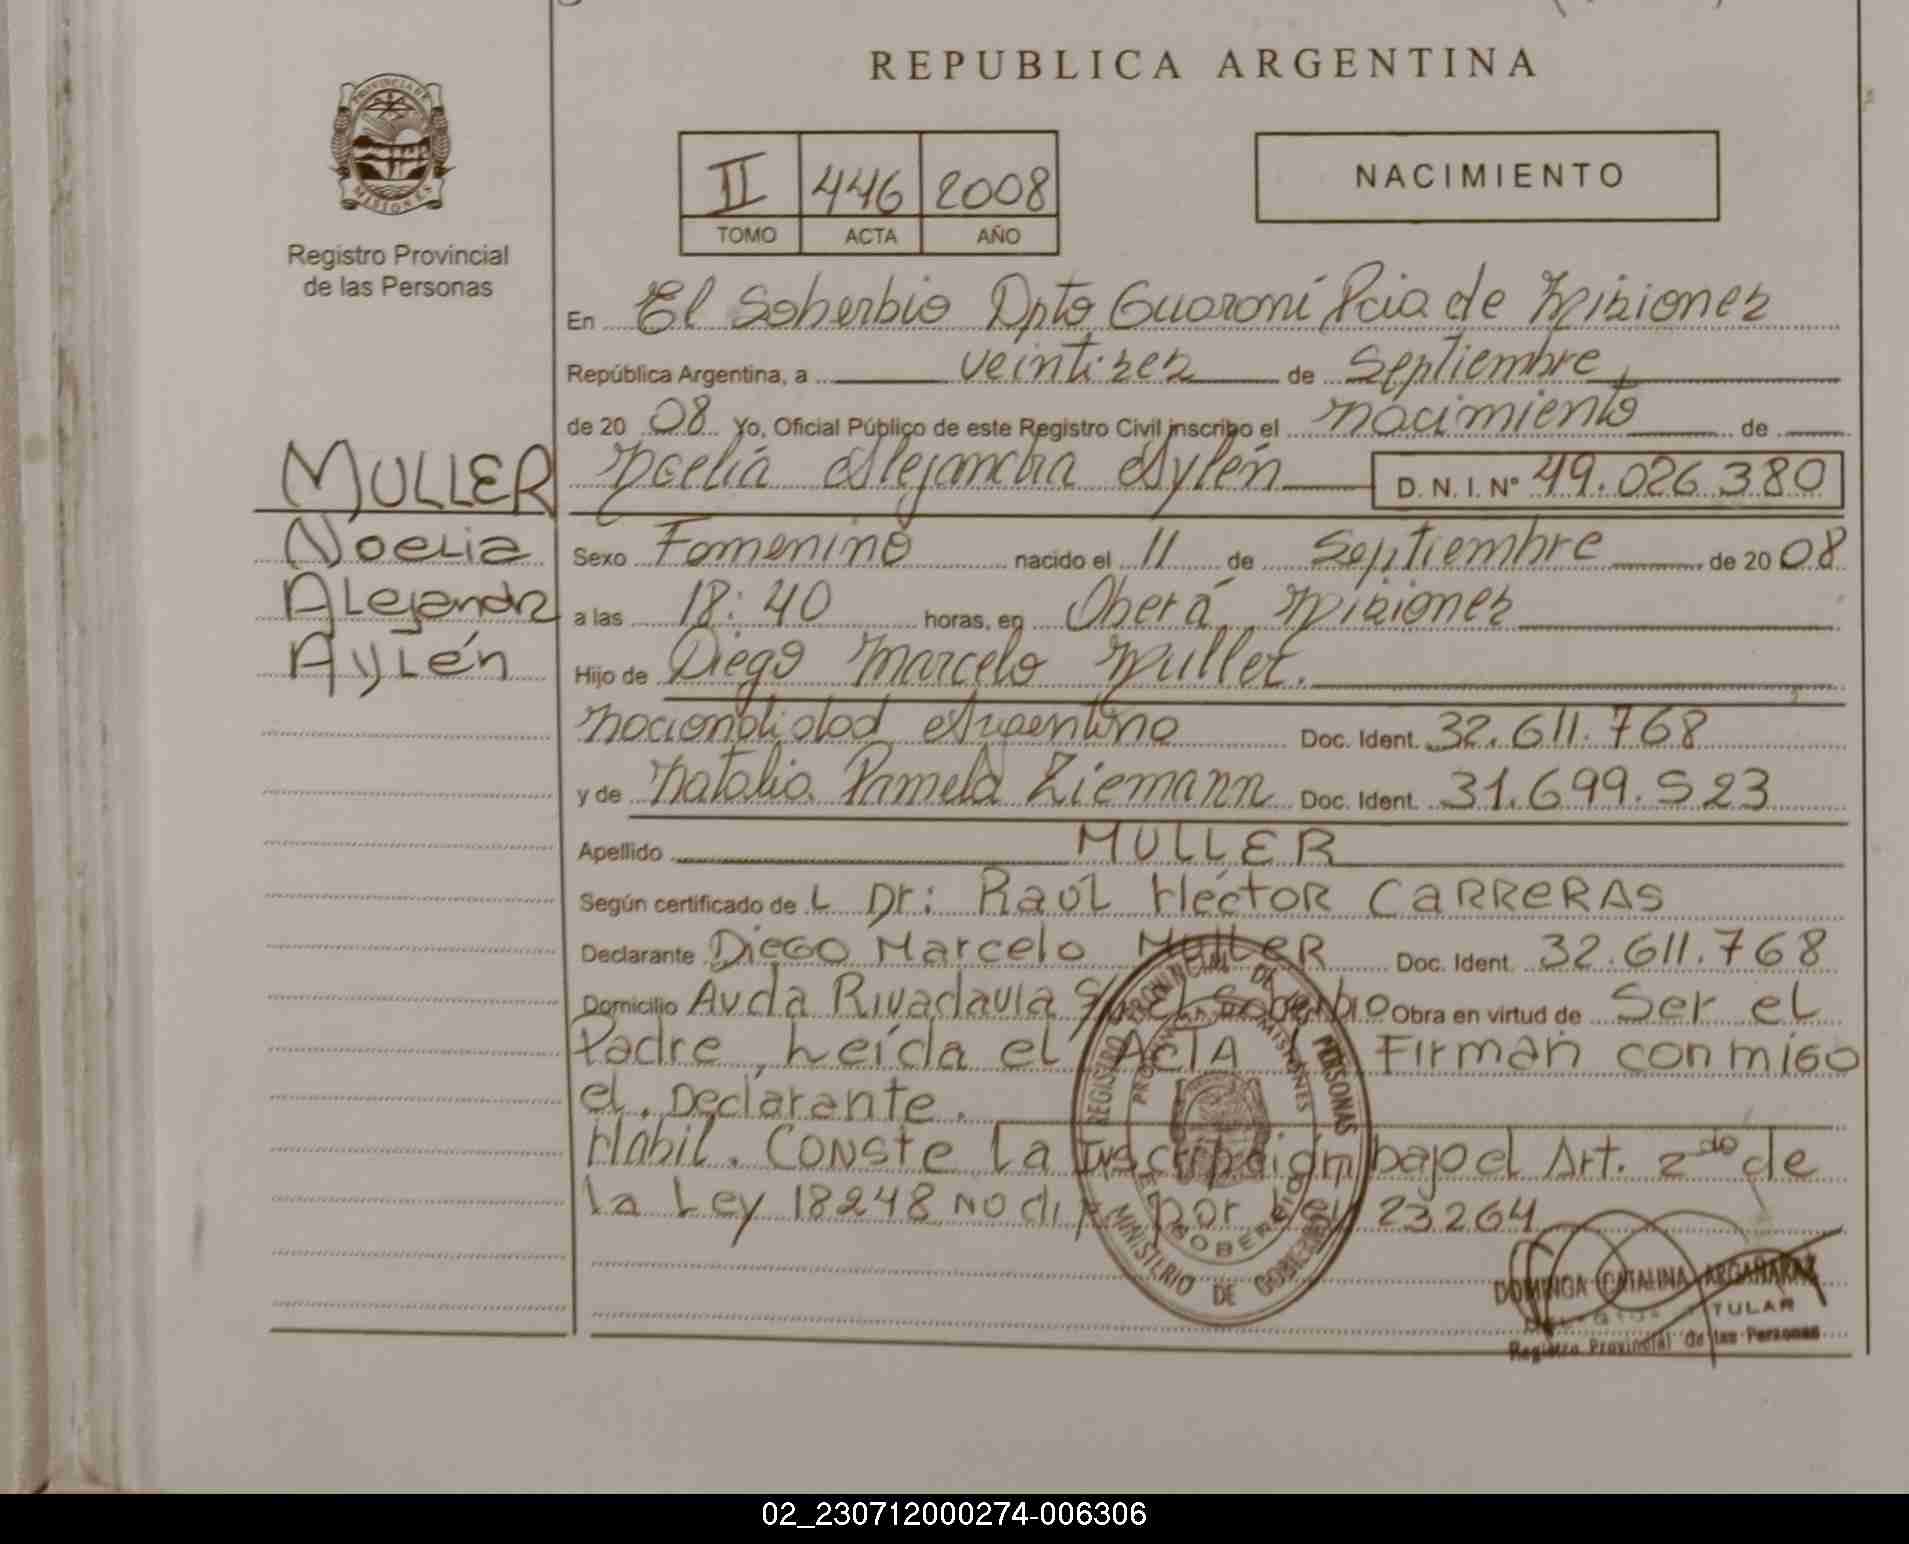 REPUBLICA ARGENTINA
PROVINCIA DE
MISIONES
Registro Provincial
de las Personas
II 446 2008
TOMO ACTA AÑO
NACIMIENTO
En El Soberbio Dpto Guaraní Pcia de Misiones
República Argentina, a veintises de Septiembre
de 20 08 Yo, Oficial Público de este Registro Civil inscribo el nacimiento de
Noelia Alejandra Aylén D.N.I. Nº 49.026.380
MULLER
Noelia
Alejandra
Aylén
Sexo Femenino nacido el 11 de Septiembre de 20 08
a las 18:40 horas, en Oberá Misiones
Hijo de Diego Marcelo Muller.
nacionalidad Argentino Doc. Ident. 32.611.768
y de Natalia Pamela Ziemann Doc. Ident. 31.699.523
Apellido MULLER
Según certificado de L Dr: Raúl Héctor CARRERAS
Declarante Diego Marcelo MULLER Doc. Ident. 32.611.768
Domicilio Avda Rivadavia El Soberbio Obra en virtud de Ser el
Padre, Leída el ACTA Firman conmigo
el Declarante.
Habil. Conste La Inscripción bajo el Art. 2do de
la Ley 18248 por Ley 23264
REGISTRO PROVINCIAL DE LAS PERSONAS
PROVINCIA DE MISIONES
EL SOBERBIO
MINISTERIO DE GOBIERNO
DOMINGA CATALINA ARGAÑARAZ
TITULAR
Registro Provincial de las Personas
02_230712000274-006306